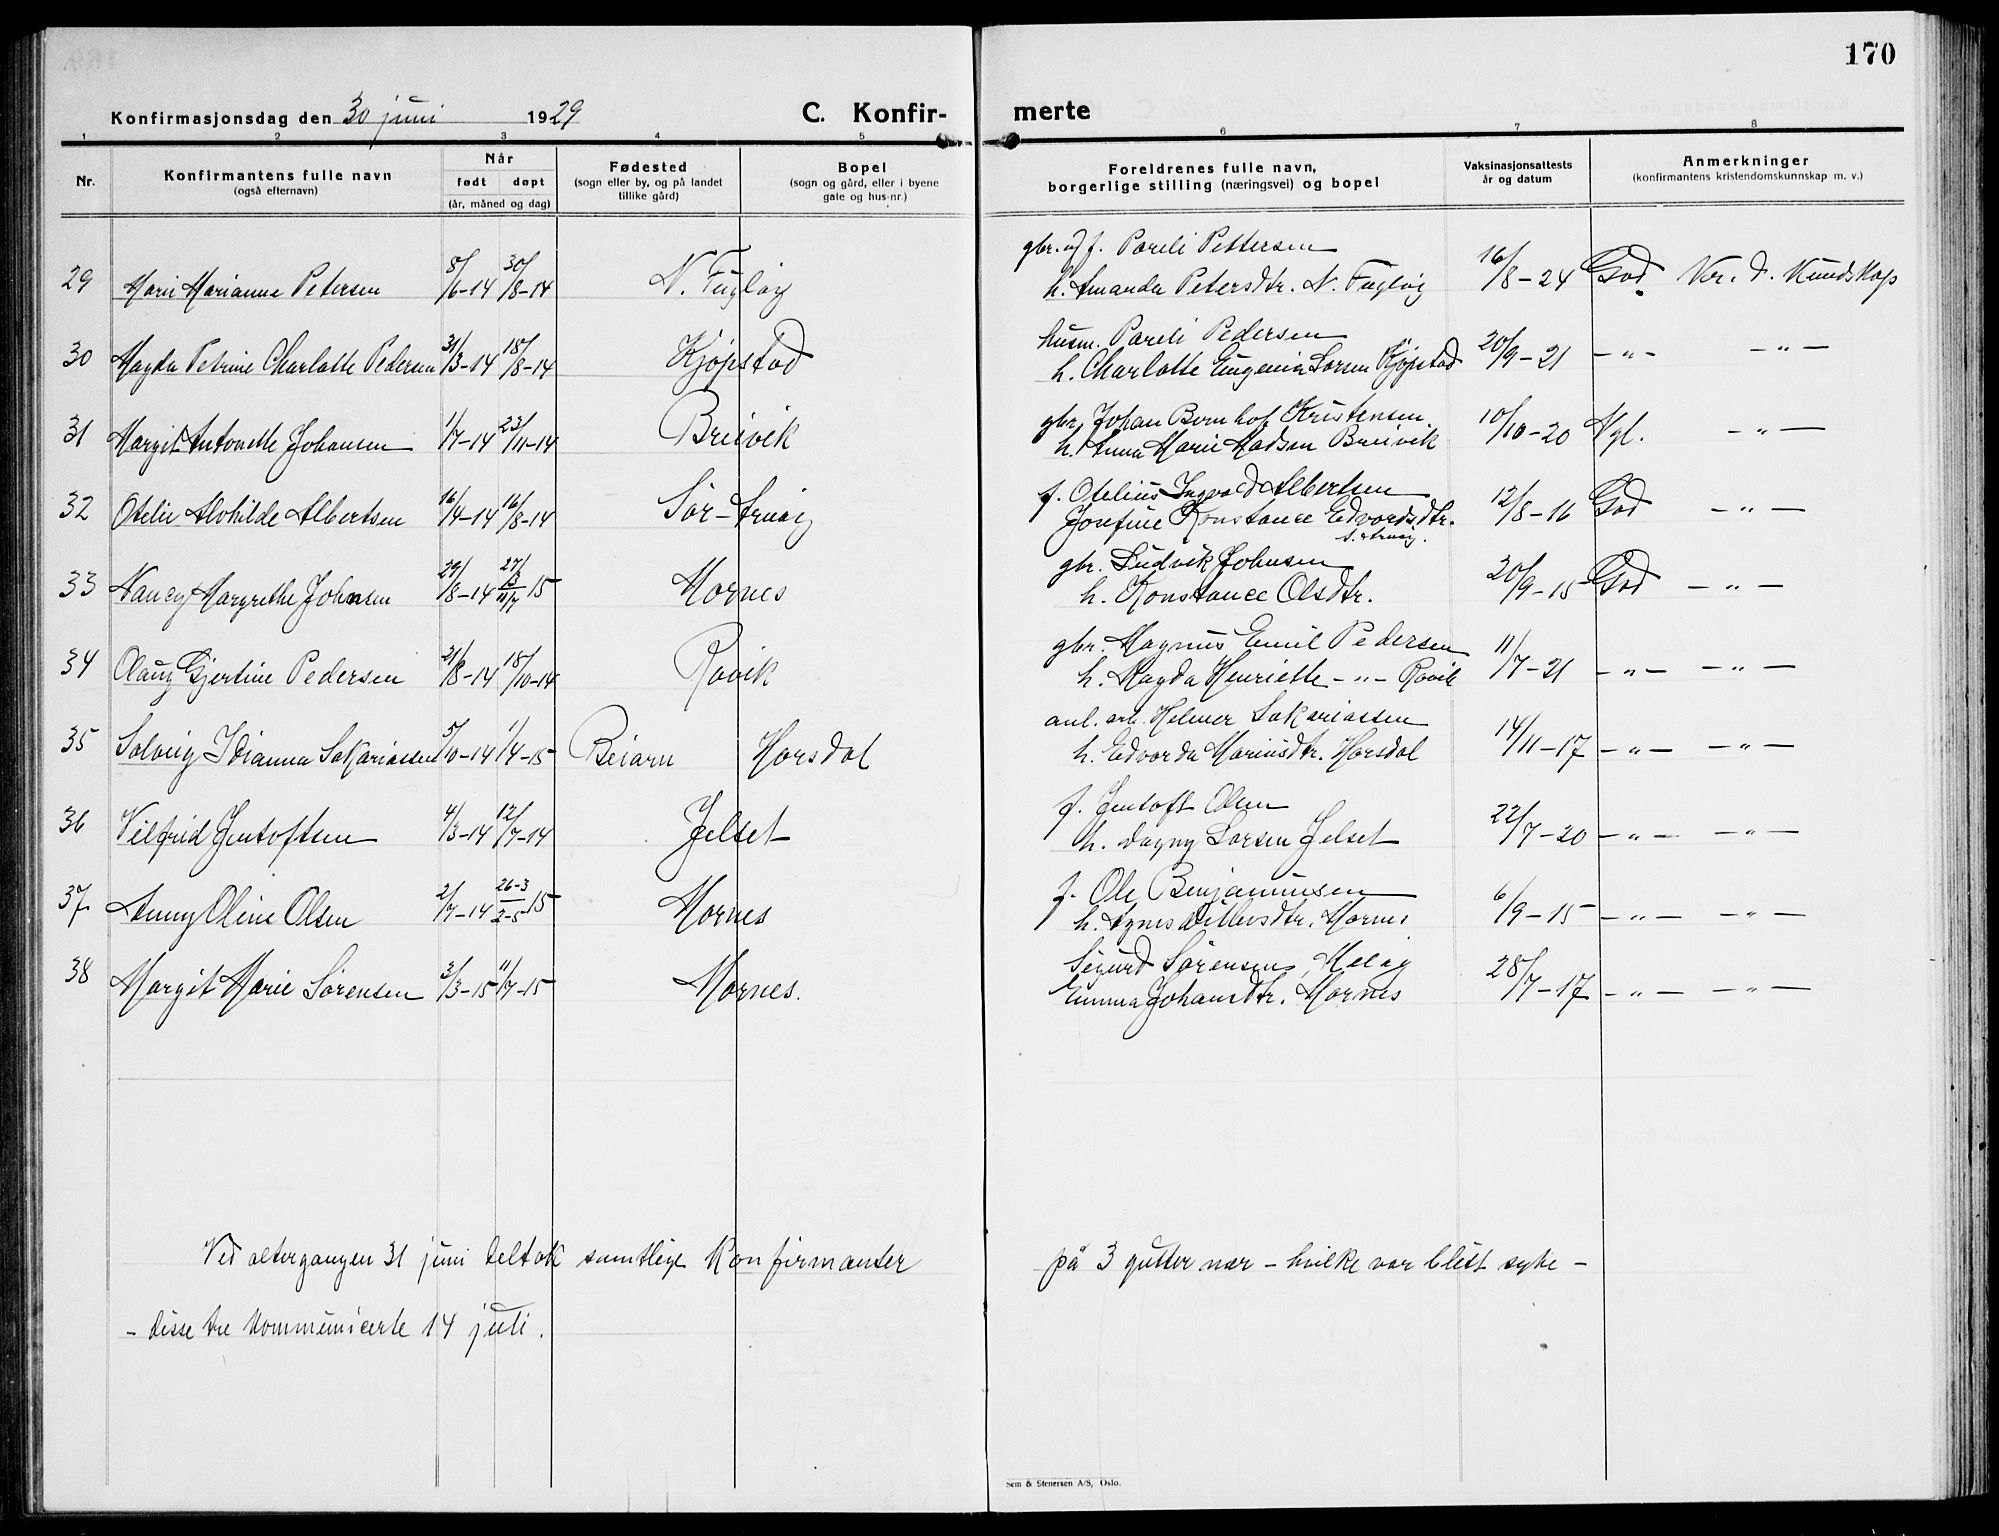 170
Konfirmasjonsdag den 30 juni 1929 C. Konfir- merte
1 2 3 4 5 6 7 8
Nr. Konfirmantens fulle navn (også efternavn)
Når født døpt (år, måned og dag)
Fødested (sogn eller by, og på landet tillike gård)
Bopel (sogn og gård, eller i byene gate og hus-nr.)
Foreldrenes fulle navn, borgerlige stilling (næringsvei) og bopel
Vaksinasjonsattests år og datum
Anmerkninger (konfirmantens kristendomskunnskap m. v.)
gbr. og f. Pareli Pettersen
29 Marie Marianne Petersen 5/6-14 30/8-14 N. Fugløy h. Amanda Petersdtr. N. Fugløy 16/8-24 God Kundskap
husm. Pareli Pedersen
30 Magda Petrine Charlotte Pedersen 31/3-14 15/8-14 Kjøpstad h. Charlotte Eugenia Larsen Kjøpstad 20/9-21 -"- -"-
gbr. Johan Bernhof Kristensen
31 Margit Antonette Johansen 1/7-14 23/11-14 Breivik h. Anna Marie Madsen Breivik 10/10-20 Mgl. -"-
f. Otelius Ingvald Albertsen
32 Otelie Alvhilde Albertsen 16/4-14 16/8-14 Sør-Arnøy Josefine Konstance Edvardsdtr. 12/8-16 God -"-
S. Arnøy.
gbr. Ludvik Johnsen
33 Nancy Margrethe Johnsen 29/8-14 27/3 11/7 15 Mornes h. Konstance Olsdtr. 20/9-15 God -"-
gbr. Magnus Emil Pedersen
34 Olaug Gjertine Pedersen 21/8-14 18/10-14 Røvik h. Magda Henriette -"- Røvik 11/7-21 -"- -"-
anl. arb. Helmer Sakariassen
35 Solveig Idianna Sakariassen 5/10-14 1/4-15 Beiarn Horsdal h. Edvarda Mariusdtr. Horsdal 14/11-17 -"- -"-
f. Jentoft Olsen
36 Vilfrid Jentoftsen 4/3-14 12/7-14 Jelset h. Dagny Larsen Jelset 22/7-20 -"- -"-
f. Ole Benjaminsen
37 Anny Oline Olsen 2/7-14 26-3 2-5 15 Mornes h. Agnes Mornes 6/9-15 -"- -"-
Sigurd Sørensen, Meløy
38 Margit Marie Sørensen 3/3-15 11/7-15 Mornes. Emma Johansdtr. Mornes 28/7-17 -"- -"-
Ved altergangen 31 juni deltok samtlige konfirmanter på 3 gutter nær - hvilke var blitt syke -
- disse tre kommunicerte 14 juli.
Sem & Stenersen A/S, Oslo.